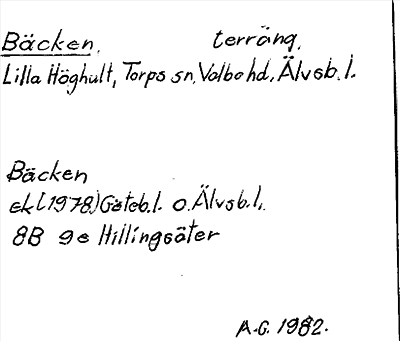 Bäcken, terräng.
Lilla Höghult, Torps sn, Valbo hd, Älvsb. l.
Bäcken
ek (1978) Göteb. l. o. Älvsb. l.
8B 9e Hillingsäter
A.G. 1982.